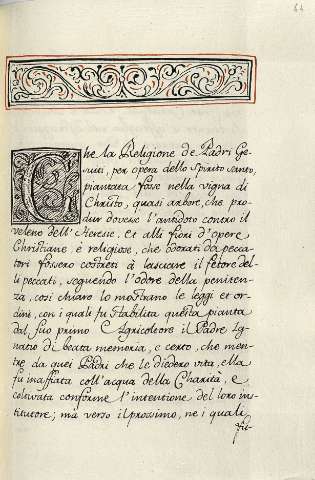 64
Che la Religione de Padri Ge-
suiti, per opera dello Spirito santo,
piantata fosse nella vigna di
Christo, quasi arbore, che pro-
dur dovesse l'antidoto contro il
veleno dell'Heresie, et alli fiori d'opere
Christiane è religiose, che odorati da pecca-
tori fossero costreti à lasciare il fetore del-
li peccati, seguendo l'odore della peniten-
za, così chiaro lo mostrano le leggi et or-
dini, con i quali fu stabilita questa pianta
dal suo primo Agricoltore il Padre Ig-
natio di beata memoria, e certo, che men-
tre da quei Padri che le diedero vita, ella
fu inaffiata coll'acqua della Charità, e
coltivata conforme l'intentione del loro ins-
titutore; ma verso il prossimo, ne i quali